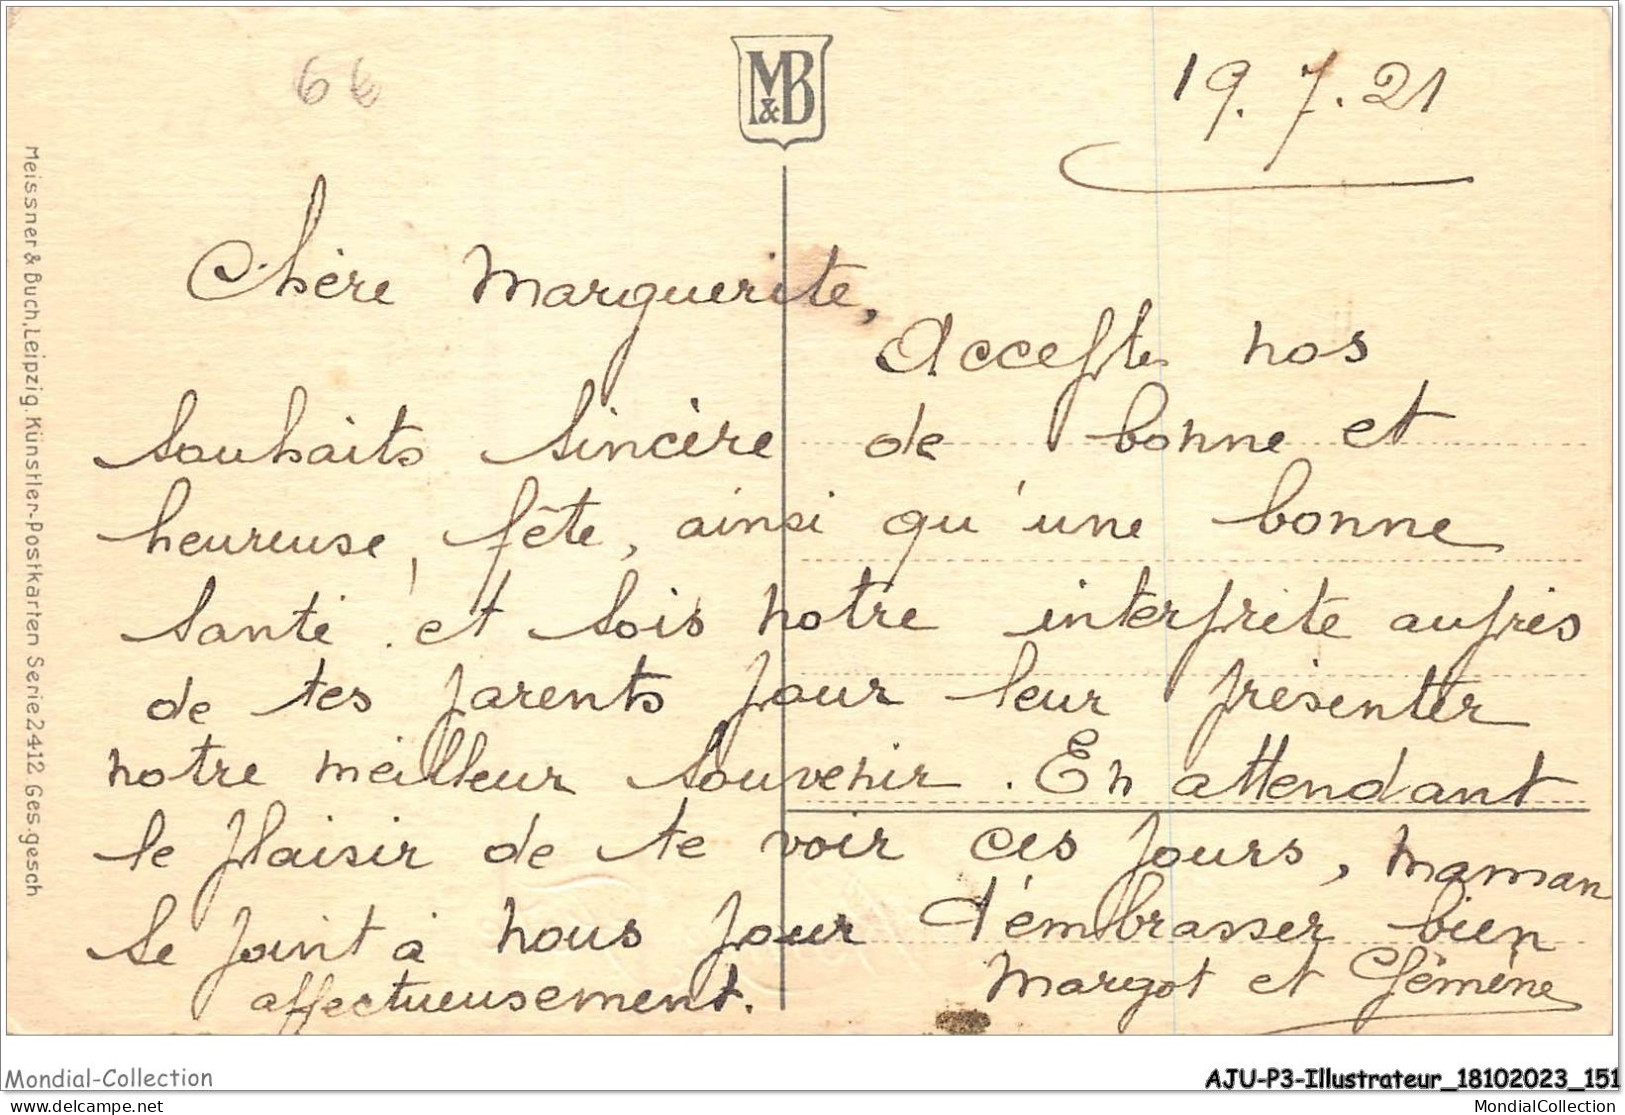 6€
M&B
19.7.21
Chère Marguerite,
Accepte nos
souhaits sincère de bonne et
heureuse, fête, ainsi qu'une bonne
santé. et sois notre interprète auprès
de tes parents pour leur présenter
notre meilleur souvenir. En attendant
le plaisir de te voir ces jours, maman
se joint à nous pour d'embrasser bien
affectueusement. Margot et
Meissner & Buch, Leipzig. Künstler-Postkarten Serie 2412 Ges. gesch
Mondial-Collection
AJU-P3-Illustrateur_18102023_151
delcampe.net
MondialCollection